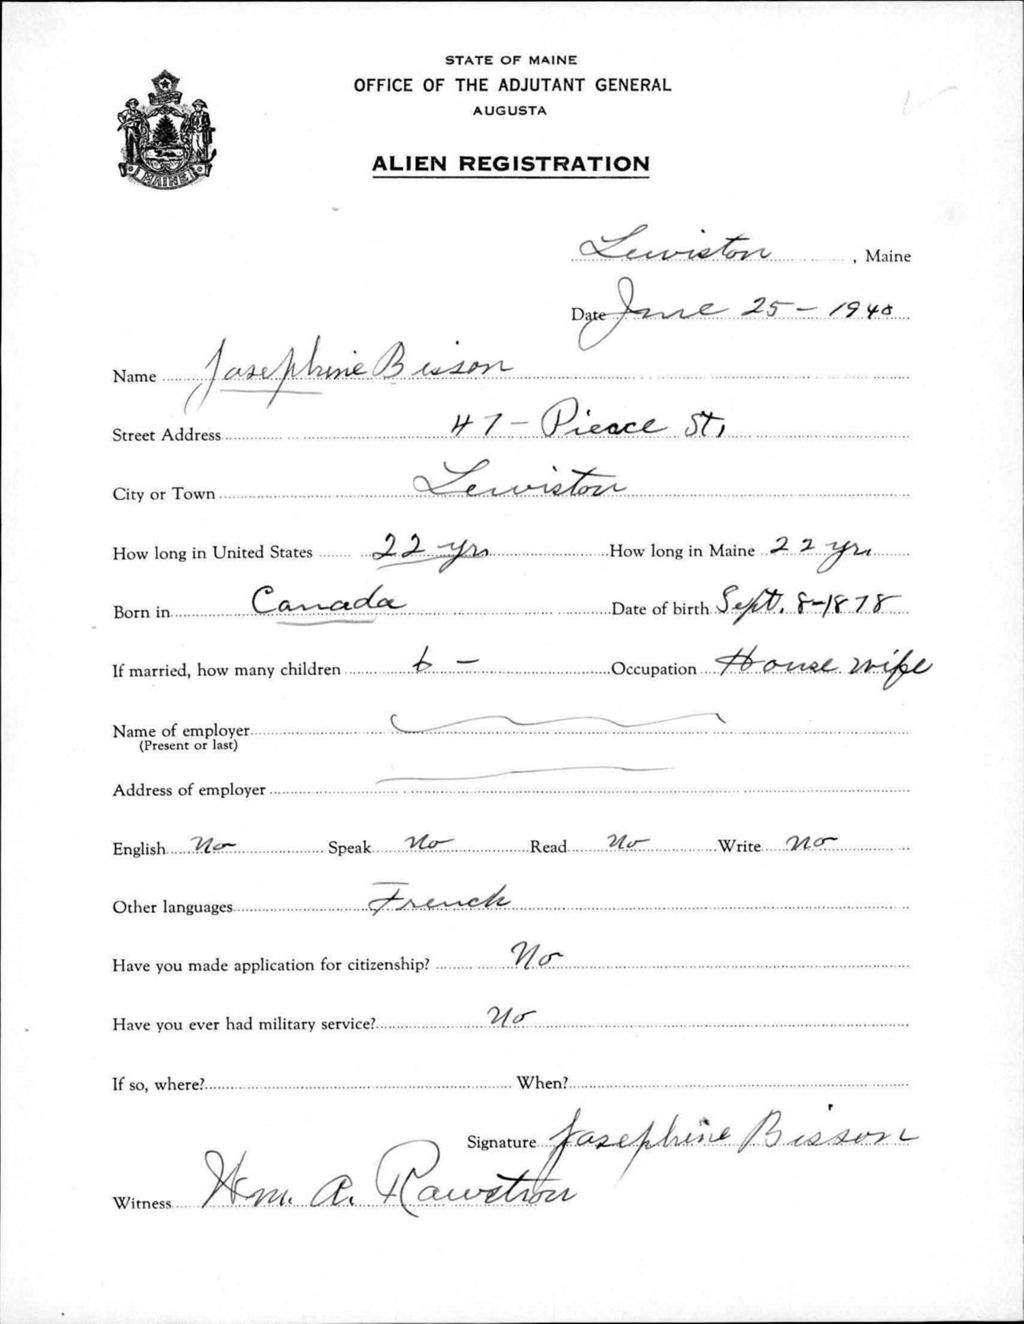 STATE OF MAINE
OFFICE OF THE ADJUTANT GENERAL
AUGUSTA
ALIEN REGISTRATION
MAINE
Lewiston, Maine
Date June 25 - 1940
Name Josephine Bisson
Street Address 47 - Pierce St.
City or Town Lewiston
How long in United States 22 yrs How long in Maine 22 yrs
Born in Canada Date of birth Sept. 8-1878
If married, how many children 6 - Occupation House wife
Name of employer
(Present or last)
Address of employer
English No Speak No Read No Write No
Other languages French
Have you made application for citizenship? No
Have you ever had military service? No
If so, where? When?
Signature Josephine Bisson
Witness Wm. A. Rawstron